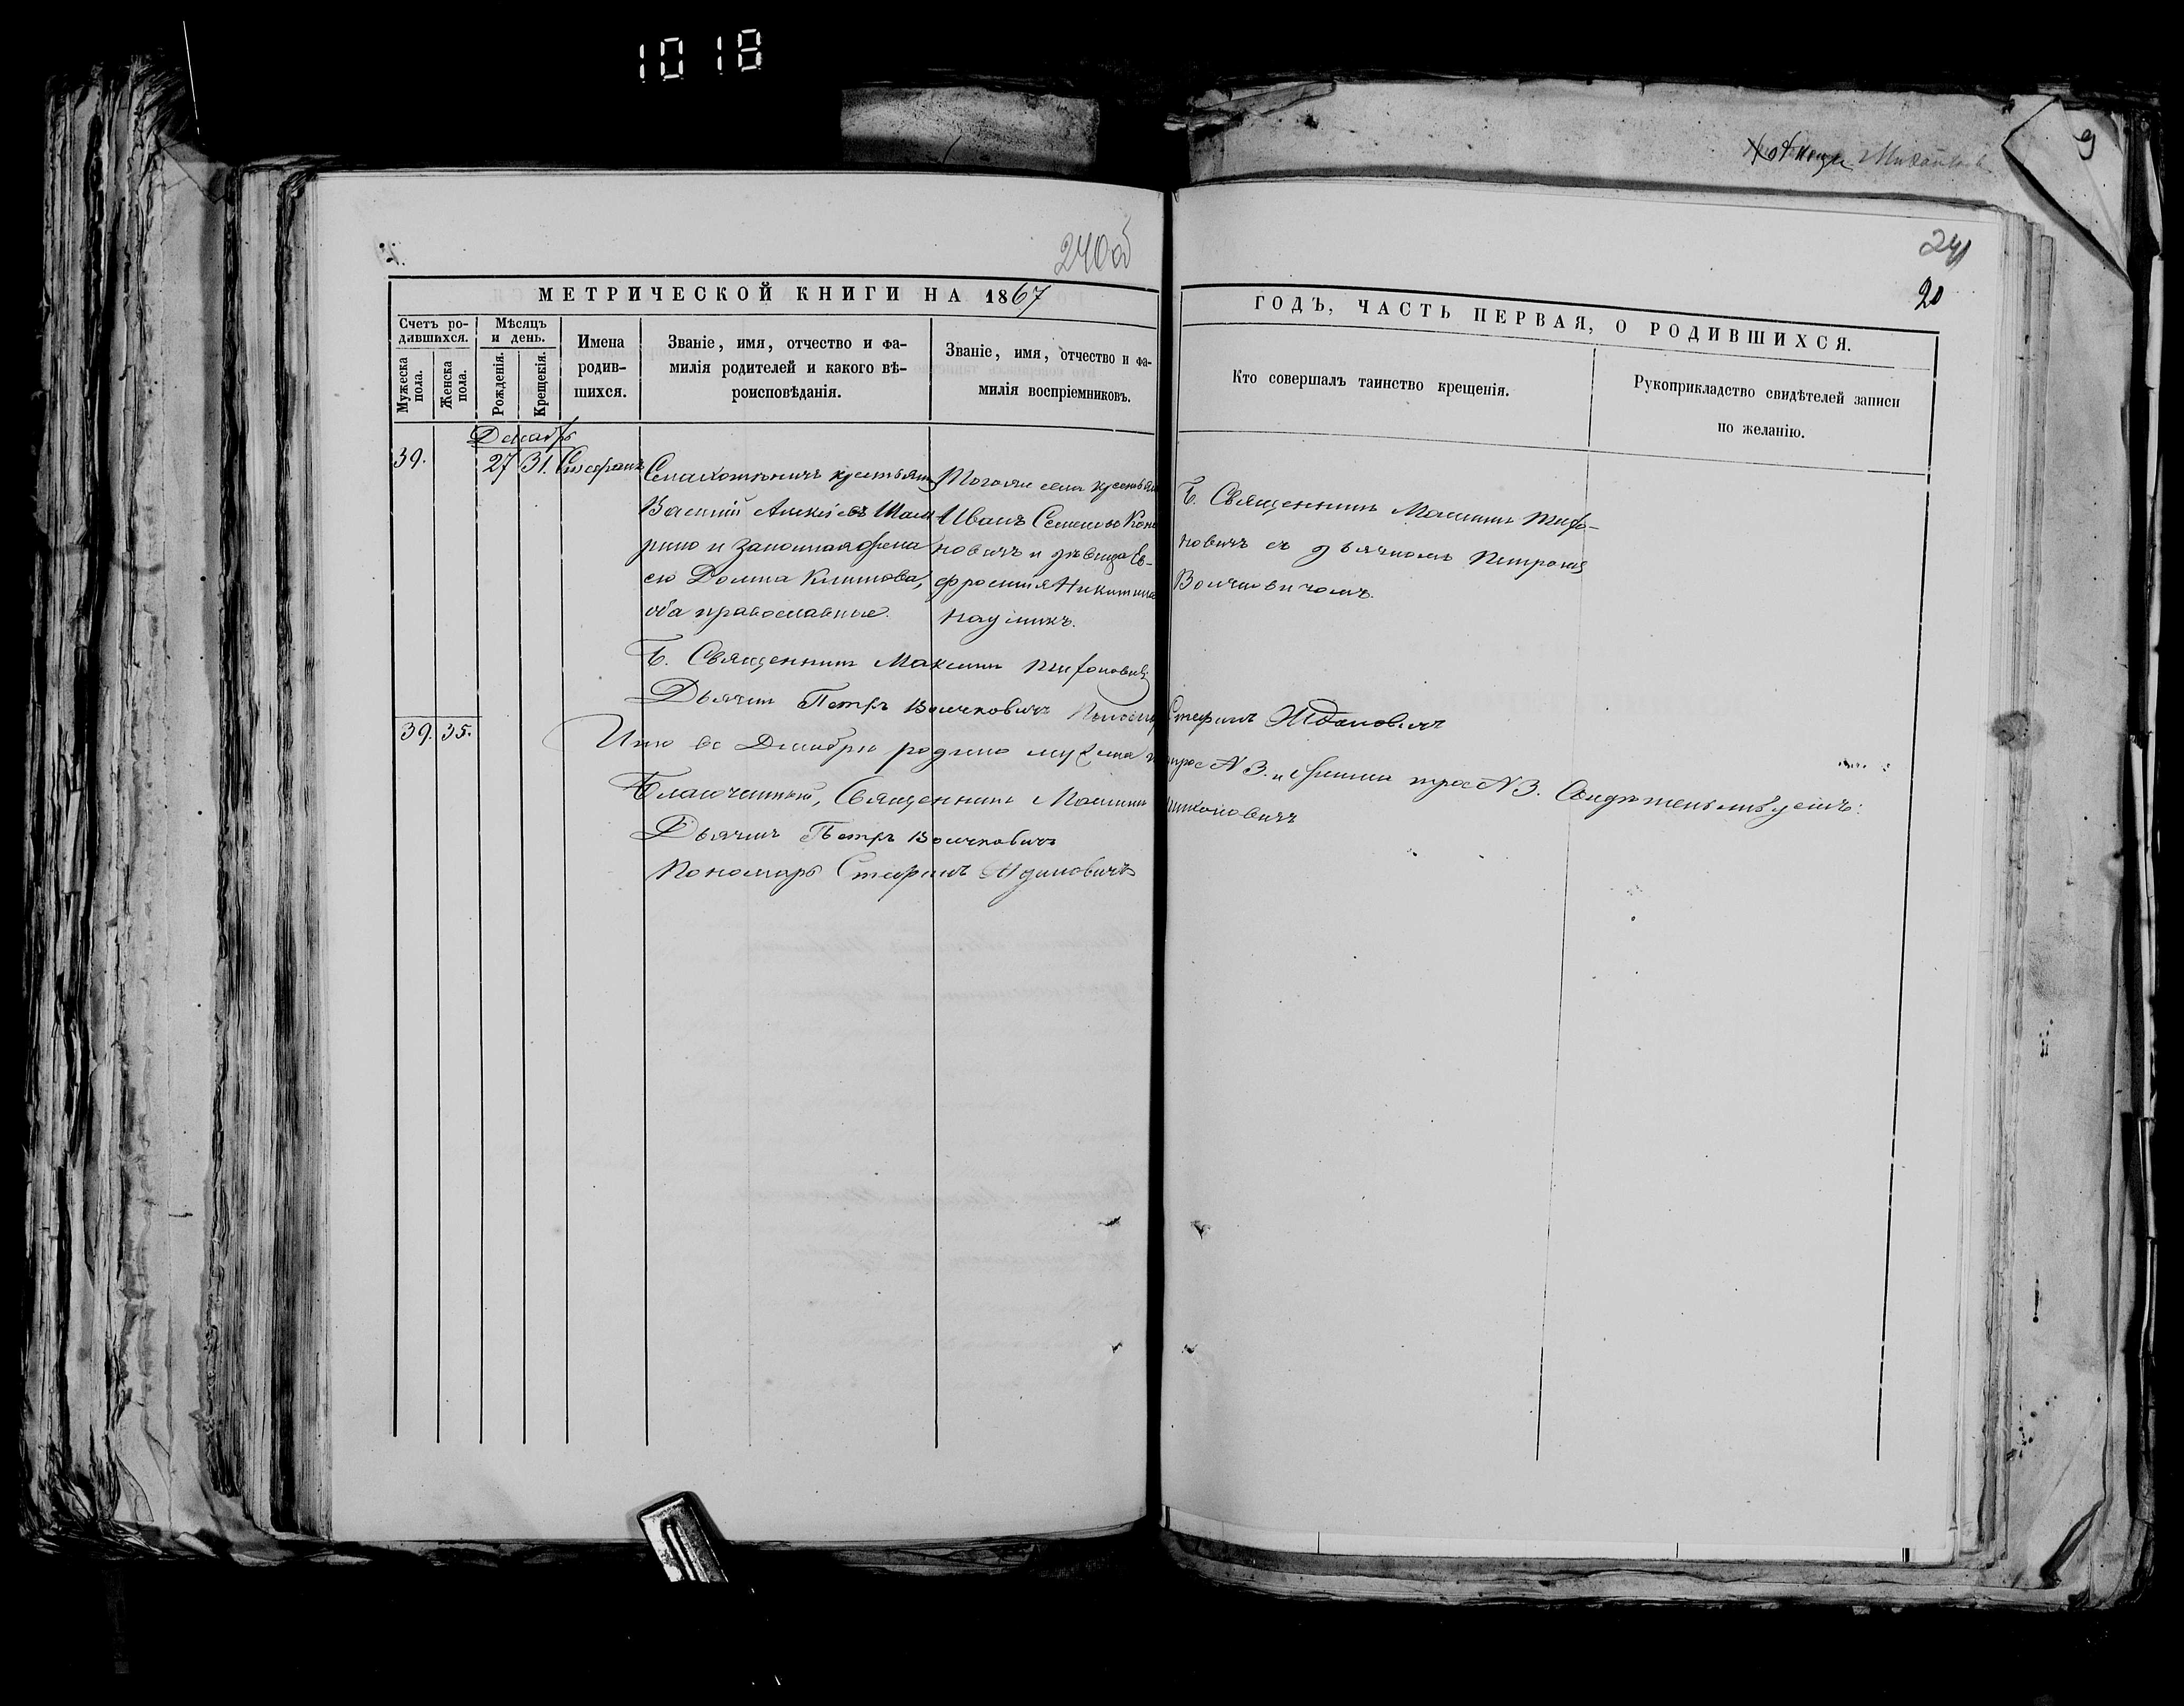 1018
9
240об
241
20
МЕТРИЧЕСКОЙ КНИГИ НА 1867
ГОДЪ, ЧАСТЬ ПЕРВАЯ, О РОДИВШИХСЯ.
Счетъ ро-
дившихся.
Мужеска пола.
Женска пола.
Мѣсяцъ
и день.
Рожденія.
Крещенія.
Имена
родив-
шихся.
Званіе, имя, отчество и фа-
милія родителей и какого вѣ-
роисповѣданія.
Званіе, имя, отчество и фа-
милія воспріемниковъ.
Кто совершалъ таинство крещенія.
Рукоприкладство свидѣтелей записи
по желанію.
Декабрь
39. 27 31. Стефанъ
крестьянинъ
Василій Алексіевъ
и законная жена
его Домна Климова,
оба православные.
Тогоже села крестьян
Иванъ Семеновъ Коно
новичъ и дѣвица Ев-
фросинія Никитина
Наумикъ.
Б. Священникъ Максимъ
новичъ съ дьячкомъ Петромъ
Волчковичомъ.
Б. Священникъ Максимъ
Дьячекъ Петръ Волчковичъ Стефанъ Ждановичъ
39. 35.
Итого въ Декабрѣ рождено мужеска трое №3. и женска трое №3. Свидѣтельствуемъ:
Благочинный, Священникъ Максимъ
Дьячекъ Петръ Волчковичъ
Пономарь Стефанъ Ждановичъ